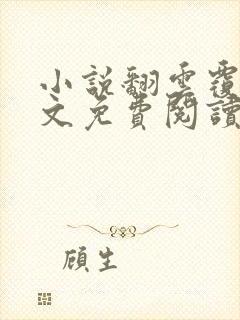 小說翻雲覆
文免費閱讀
顧生